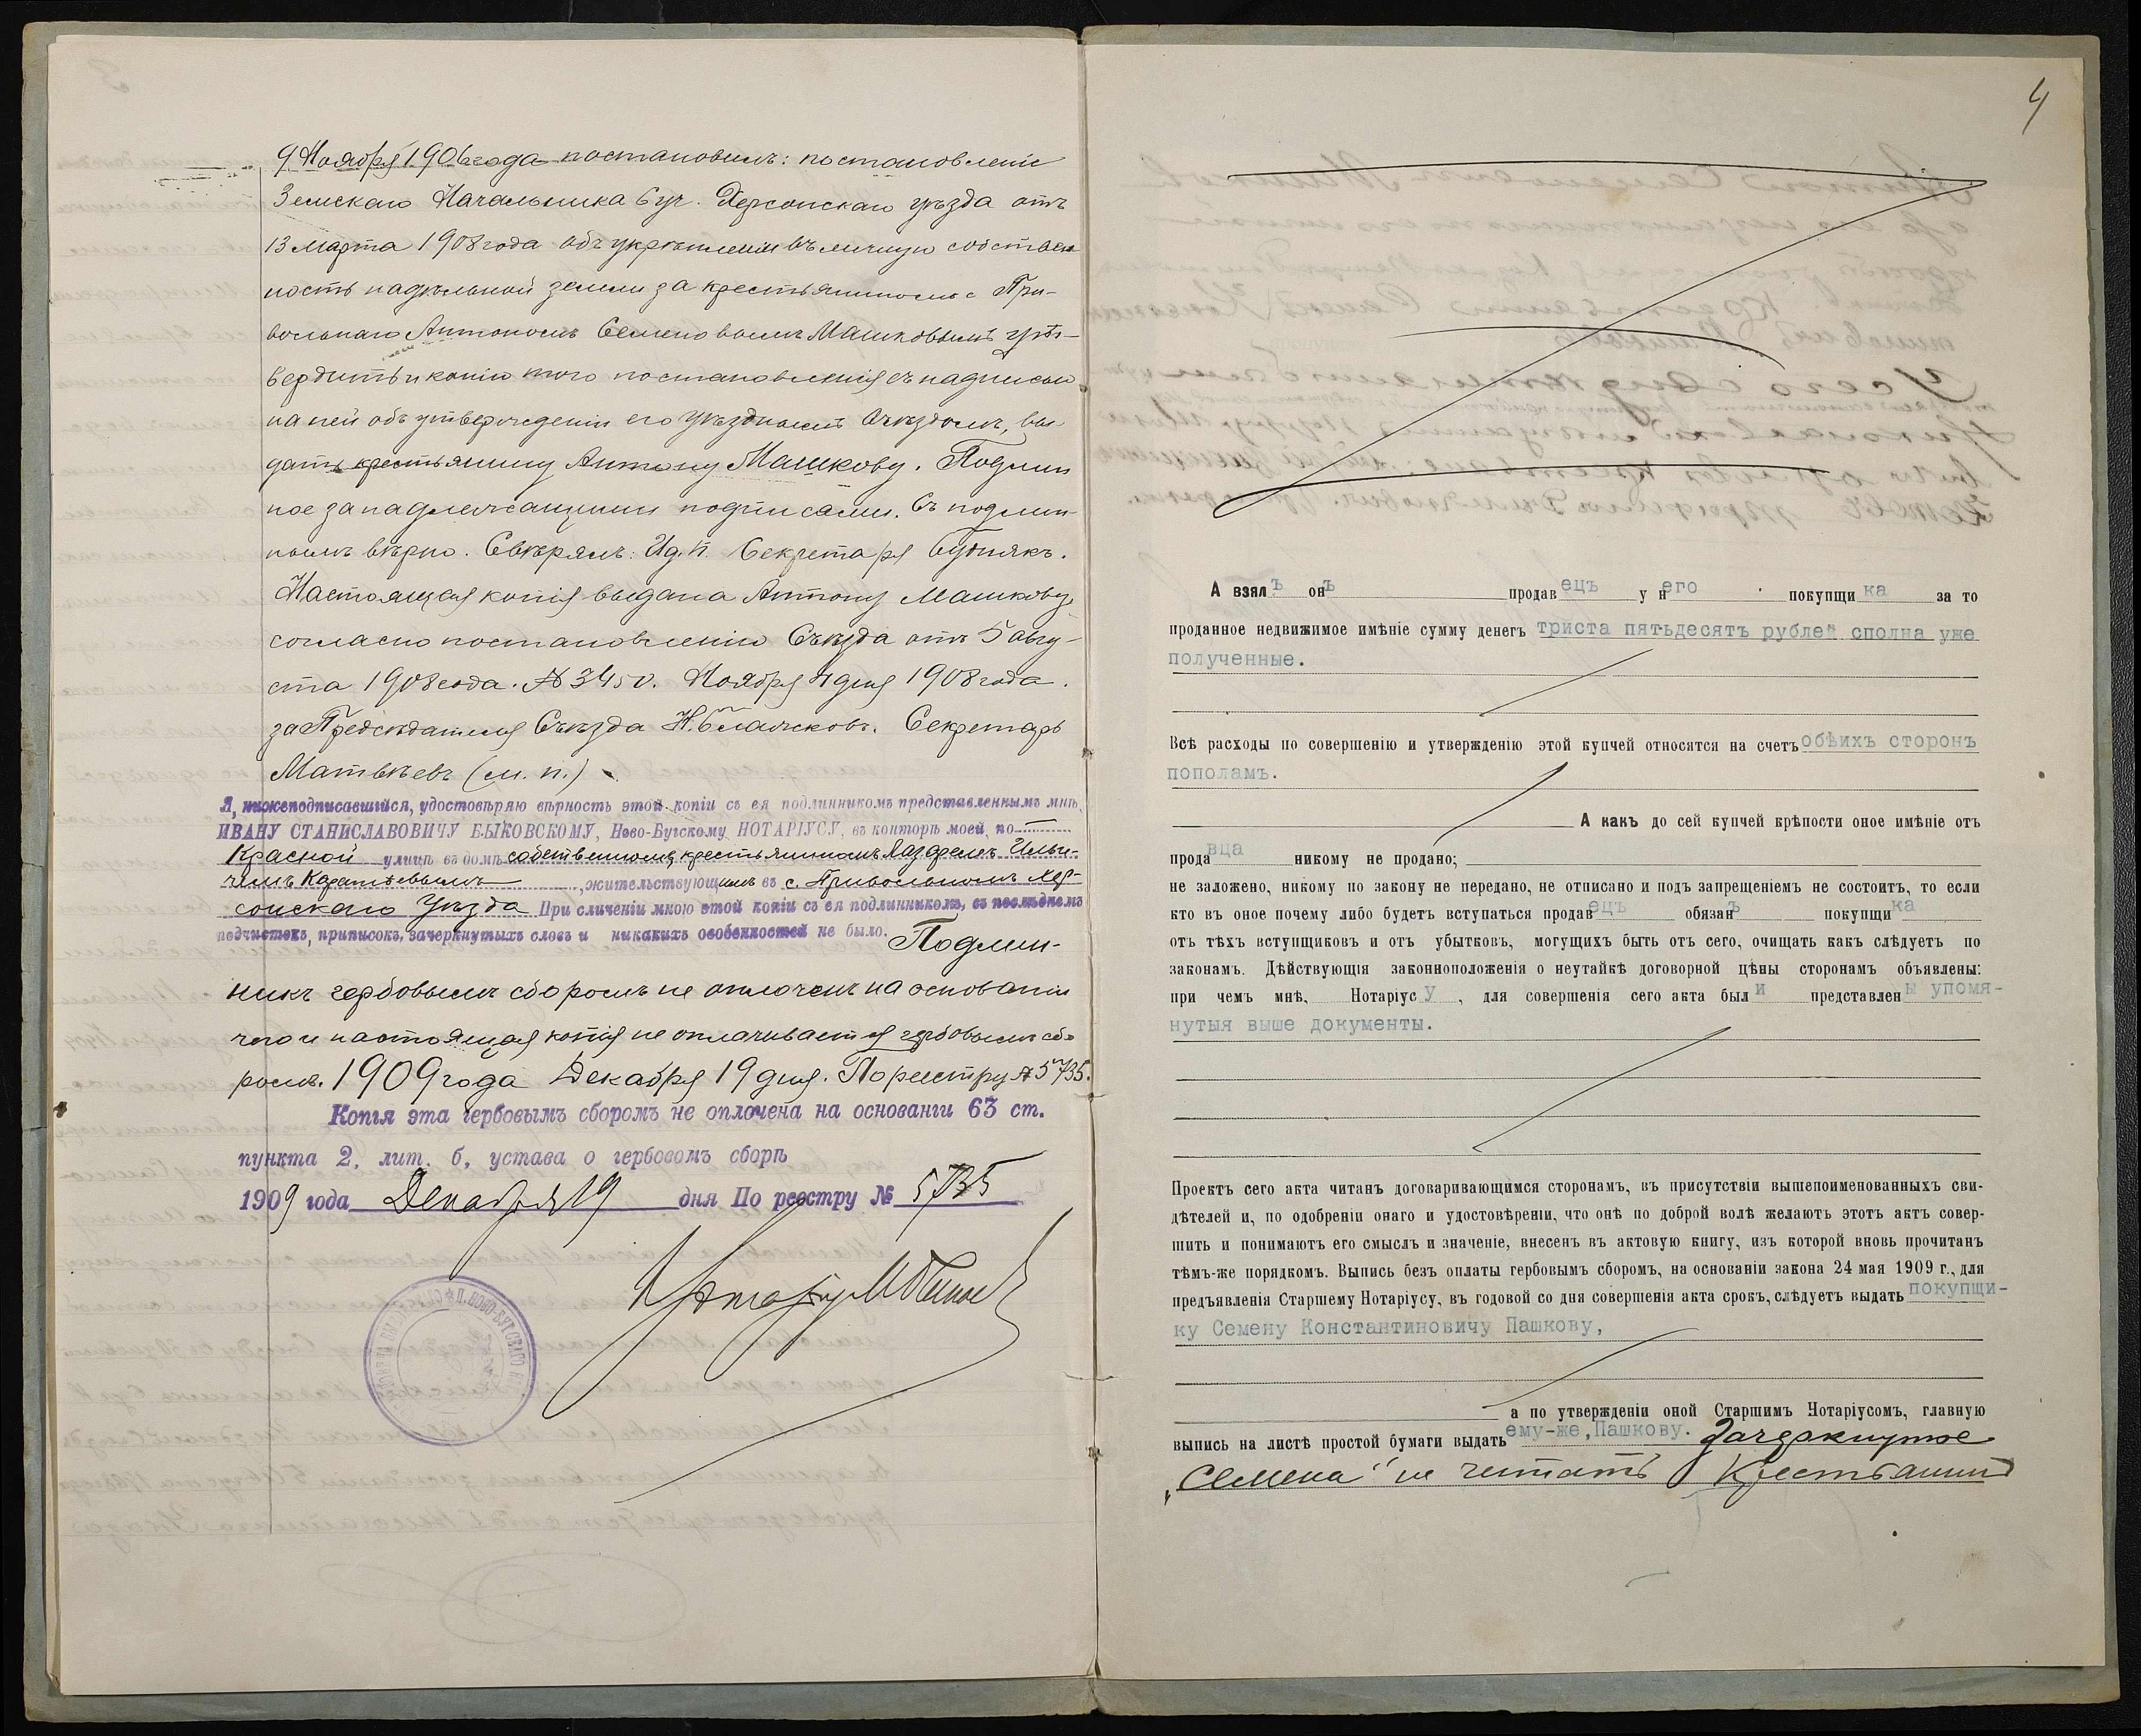 9 Ноября 1906 года постановилъ: постановленіе
Земскаго Начальника 6 уч. Херсонскаго уѣзда отъ
13 Марта 1908 года объ укрѣпленіи въ личную собствен
ность надѣльной земли за крестьяниномъ с. При-
вольнаго Антономъ Семеновымъ Машковымъ утв-
вердить и копію того постановленія съ надписью
на ней объ утвержденіи его Уѣзднымъ Съѣздомъ, вы
дать крестьянину Антону Машкову. Подлин
ное за надлежащими подписями. Съ подлин-
нымъ вѣрно. Свѣрялъ: И.д. Секретаря
Настоящая копія выдана Антону Машкову,
согласно постановленію Съѣзда отъ 5 авгу-
ста 1908 года. № 3450. Ноября 4 дня 1908 года.
за Предсѣдателя Съѣзда Н. Секретарь
Матвѣевъ (м. п.)
Я, нижеподписавшійся, удостовѣряю вѣрность этой копіи съ ея подлинникомъ представленнымъ мнѣ,
ИВАНУ СТАНИСЛАВОВИЧУ БЫКОВСКОМУ, Ново-Бугскому НОТАРІУСУ, въ конторѣ моей, по
Красной улицѣ въ домѣ собственномъ, крестьяниномъ Ильи-
чемъ жительствующимъ въ с. Привольномъ Хер-
сонскаго Уѣзда При сличеніи мною этой копіи съ ея подлинникомъ, въ послѣднемъ
подчистокъ, приписокъ, зачеркнутыхъ словъ и никакихъ особенностей не было. Подлин-
никъ гербовымъ сборомъ не оплоченъ на основаніи
чего и настоящая копія не оплачивается гербовымъ сбо
ромъ. 1909 года Декабря 19 дня. По реестру № 5735.
Копія эта гербовымъ сборомъ не оплочена на основаніи 63 ст.
пункта 2, лит. б, устава о гербовомъ сборѣ
1909 года Декабря 19 дня По реестру № 5735
Нотаріусъ
4
А взялъ онъ продавецъ у него покупщика за то
проданное недвижимое имѣніе сумму денегъ триста пятьдесятъ рублей сполна уже
полученные.
Всѣ расходы по совершенію и утвержденію этой купчей относятся на счетъ обѣихъ сторонъ
пополамъ.
А какъ до сей купчей крѣпости оное имѣніе отъ
продавца никому не продано;
не заложено, никому по закону не передано, не отписано и подъ запрещеніемъ не состоитъ, то если
кто въ оное почему либо будетъ вступаться продавецъ обязанъ покупщика
отъ тѣхъ вступщиковъ и отъ убытковъ, могущихъ быть отъ сего, очищать какъ слѣдуетъ по
законамъ. Дѣйствующія законноположенія о неутайкѣ договорной цѣны сторонамъ объявлены:
при чемъ мнѣ, Нотаріусу, для совершенія сего акта были представлены упомя-
нутыя выше документы.
Проектъ сего акта читанъ договаривающимся сторонамъ, въ присутствіи вышепоименованныхъ сви-
дѣтелей и, по одобреніи онаго и удостовѣреніи, что онѣ по доброй волѣ желаютъ этотъ актъ совер-
шить и понимаютъ его смыслъ и значеніе, внесенъ въ актовую книгу, изъ которой вновь прочитанъ
тѣмъ-же порядкомъ. Выпись безъ оплаты гербовымъ сборомъ, на основаніи закона 24 мая 1909 г., для
предъявленія Старшему Нотаріусу, въ годовой со дня совершенія акта срокъ, слѣдуетъ выдать покупщи-
ку Семену Константиновичу Пашкову,
а по утвержденіи оной Старшимъ Нотаріусомъ, главную
выпись на листѣ простой бумаги выдать ему-же, Пашкову. Зачеркнутое
„Семена" не читать Крестьянинъ